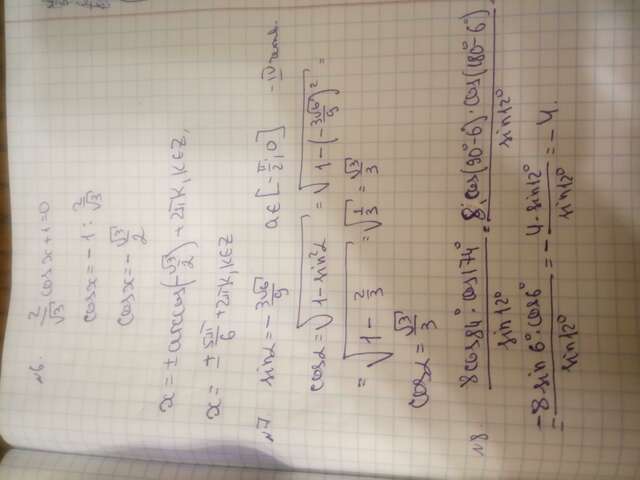 №6. 2/√3 cos x + 1 = 0
cos x = -1 : 2/√3
cos x = -√3/2
x = ± arccos(-√3/2) + 2πk, k∈Z,
x = ± 5π/6 + 2πk, k∈Z
№7 sinα = -3√6/9 α∈[-π/2; 0] - IV четв.
cosα = √(1 - sin²α) = √(1 - (-3√6/9)²) =
= √(1 - 2/3) = √(1/3) = √3/3
cosα = √3/3
№8 8cos84°·cos174°/sin12° = 8·cos(90°-6)·cos(180°-6°)/sin12°
= -8sin6°·cos6°/sin12° = -4·sin12°/sin12° = -4.